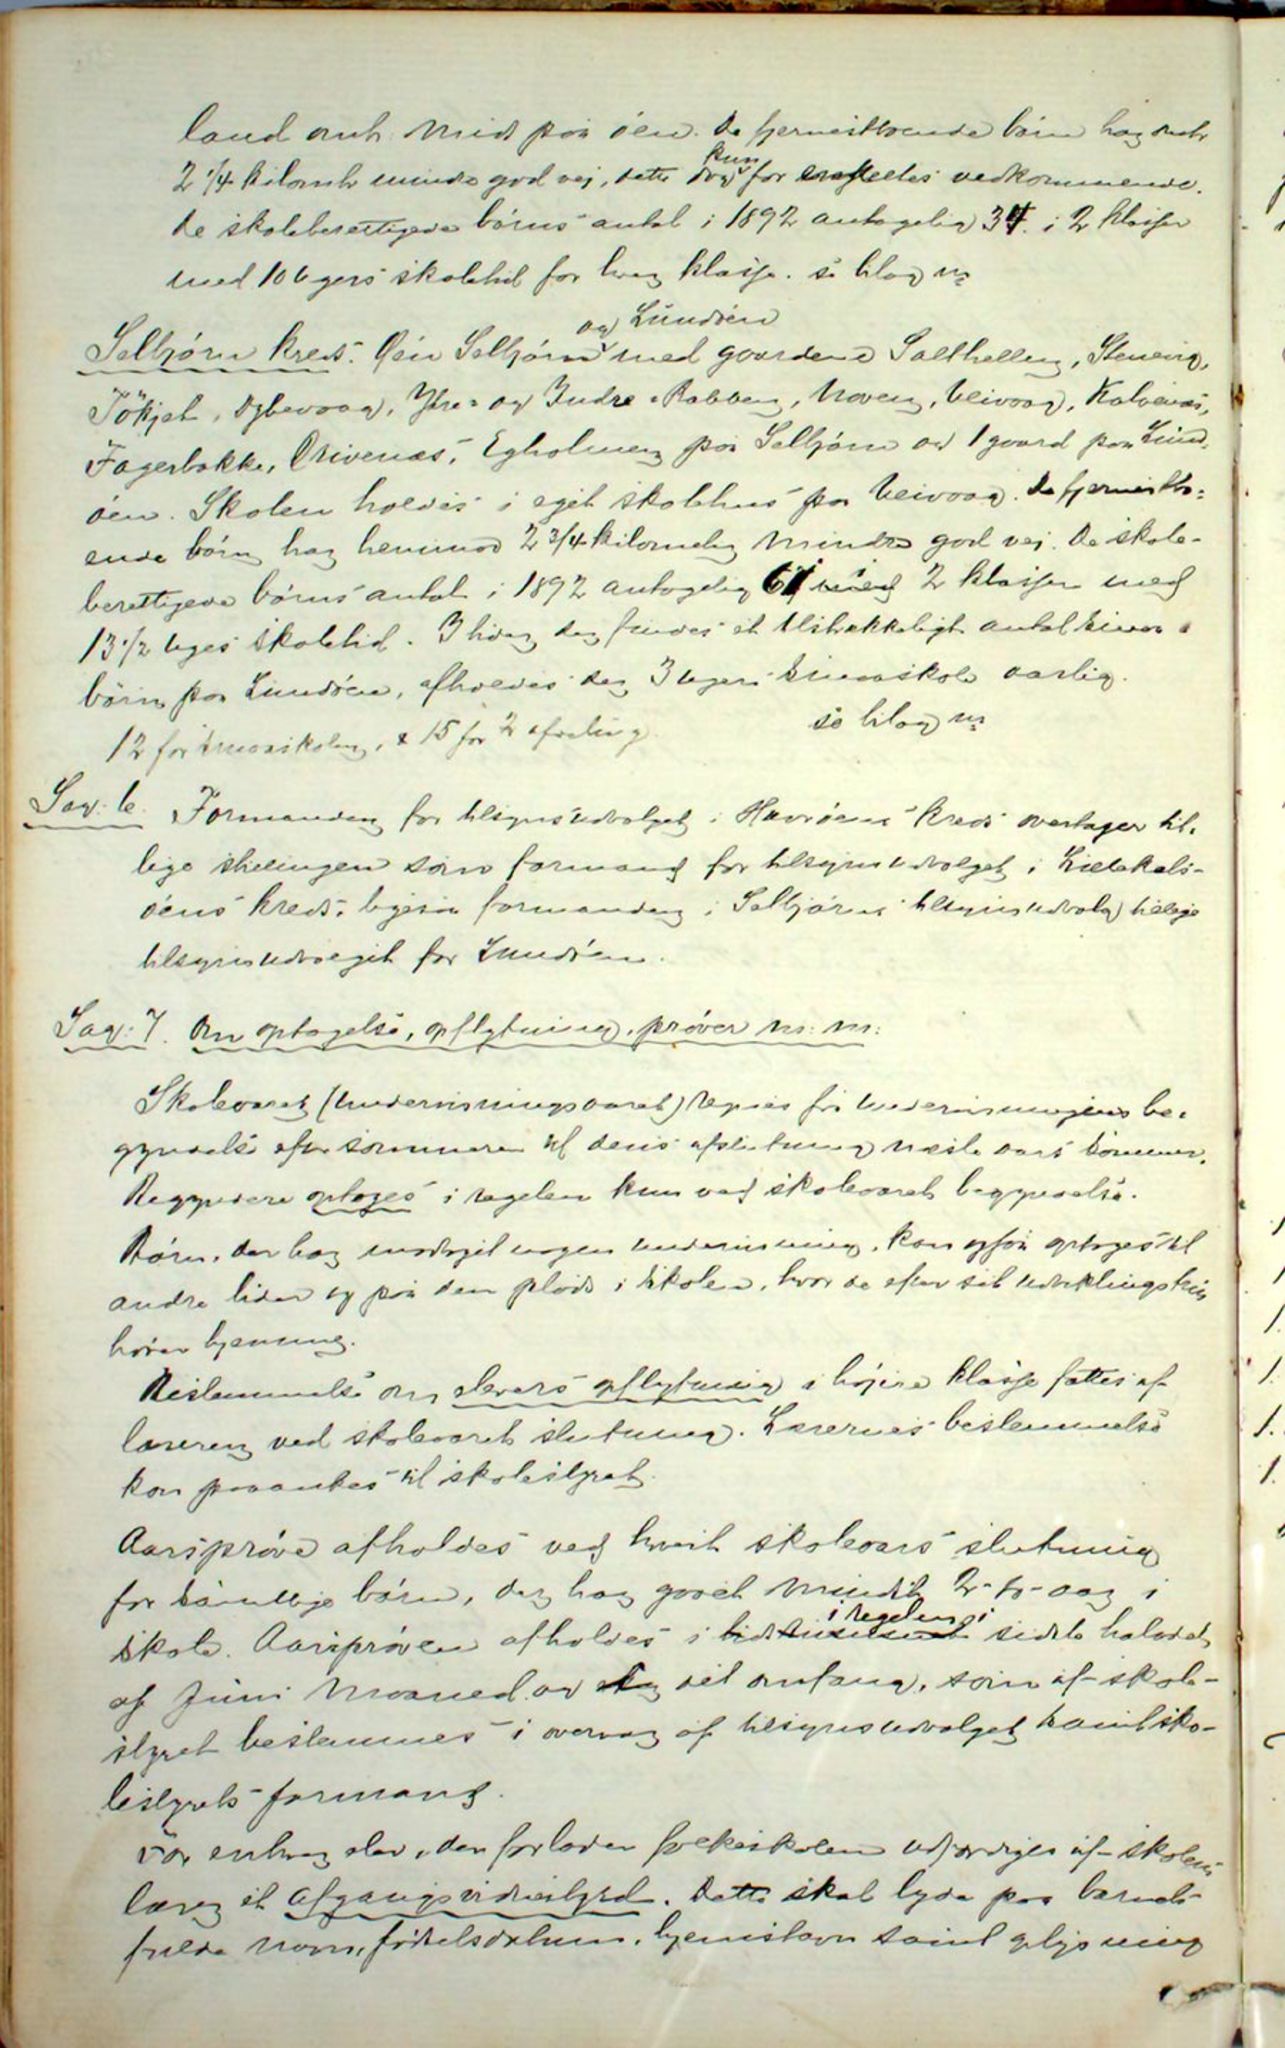 land omtr. midt paa øen. De fjernestboende børn har omtr.
2 1/4 kilomtr. mindre god vej, dette dog kun for vedkommende.
De skoleberettigede børns antal i 1892 antagelig 34. i 2 klasser
med 10 ugers skoletid for hver klasse. se bilag nr
og Lundøen
Selbjørn kreds. Øen Selbjørn med gaardene Salthellen, Stenevig,
Tökjet, Ytre- og Indre-Rabben, Hoven, Veivaag, Kalvenæs,
Fagerbakke, Drivenæs, Egholmen paa Selbjørn og 1 gaard paa Lund-
øen. Skolen holdes i eget skolehus paa Veivaag. De fjernestbo-
ende børn har henimod 2 3/4 kilometer mindre god vej. De skole-
berettigede børns antal i 1892 antagelig 61 i 2 klasser med
13 1/2 uges skoletid. Ifald der findes et tilstrækkeligt antal smaa
børn paa Lundøen, afholdes der 3 ugers smaaskole aarlig.
12 for smaaskolen, & 15 for 2 afdeling. se bilag nr
Sag: 6. Formanden for tilsynsudvalget i Havrøens kreds overtager til-
lige stillingen som formand for tilsynsudvalget i Litlekals-
øens kreds, ligesom formanden i Selbjørns tilsynsudvalg tillige
tilsynsudvalget for Lundøen.
Sag: 7. Om optagelse, opflytning, prøver m. m.
Skoleaaret (undervisningsaaret) regnes fra undervisningens be-
gyndelse efter sommeren til dens afslutning næste aars sommer.
Begyndere optages i regelen kun ved skoleaarets begyndelse.
Børn, der har modtaget nogen undervisning, kan ogsaa optages til
andre tider og paa den plads i skolen, hvor de efter sit udviklingstrin
hører hjemme.
Bestemmelse om elevers opflytning i høiere klasse fattes af
læreren ved skoleaarets slutning. Lærernes bestemmelse
kan paaankes til skolestyret.
Aarsprøve afholdes ved hvert skoleaars slutning
for samtlige børn, der har gaaet mindst 2-to-aar i
skole. Aarsprøven afholdes i regelen i sidste halvdel
af Juni maaned og i det omfang, som af skole-
styret bestemmes i overvær af tilsynsudvalget samt sko-
lestyrets formand.
For enhver elev, der forlader folkeskolen udfærdiges af skolens
lærer et afgangsvidnesbyrd. Dette skal lyde paa barnets
fulde navn, fødselsdatum, hjemstavn samt oplysning